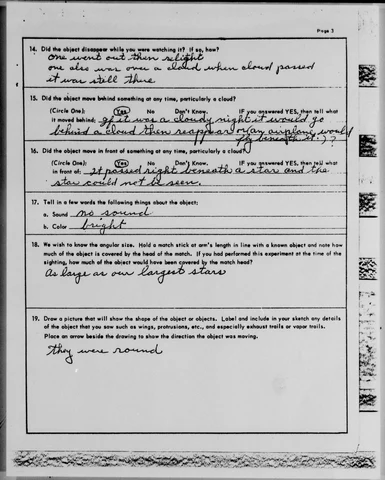 Page 3
14. Did the object disappear while you were watching it? If so, how?
one went out then relight
one also was over a cloud when cloud passed
it was still there
15. Did the object move behind something at any time, particularly a cloud?
(Circle One): Yes No Don't Know. IF you answered YES, then tell what
it moved behind: If it was a cloudy night it would go
behind a cloud then reappear or an airplane would
fly beneath it.??
16. Did the object move in front of something at any time, particularly a cloud?
(Circle One): Yes No Don't Know. IF you answered YES, then tell what
in front of: It passed right beneath a star and the
star could not be seen.
17. Tell in a few words the following things about the object:
a. Sound no sound
b. Color bright
18. We wish to know the angular size. Hold a match stick at arm's length in line with a known object and note how
much of the object is covered by the head of the match. If you had performed this experiment at the time of the
sighting, how much of the object would have been covered by the match head?
As large as our largest stars
19. Draw a picture that will show the shape of the object or objects. Label and include in your sketch any details
of the object that you saw such as wings, protrusions, etc., and especially exhaust trails or vapor trails.
Place an arrow beside the drawing to show the direction the object was moving.
they were round